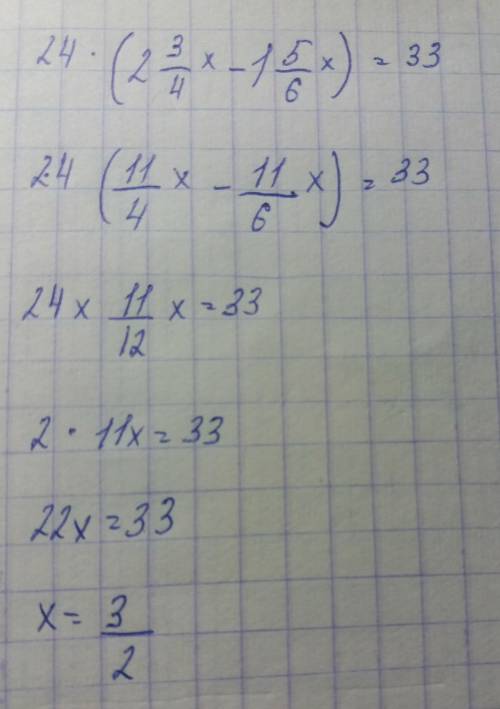 24 · (2 3/4 x - 1 5/6 x) = 33
24 (11/4 x - 11/6 x) = 33
24 x 11/12 x = 33
2 · 11x = 33
22x = 33
x = 3/2